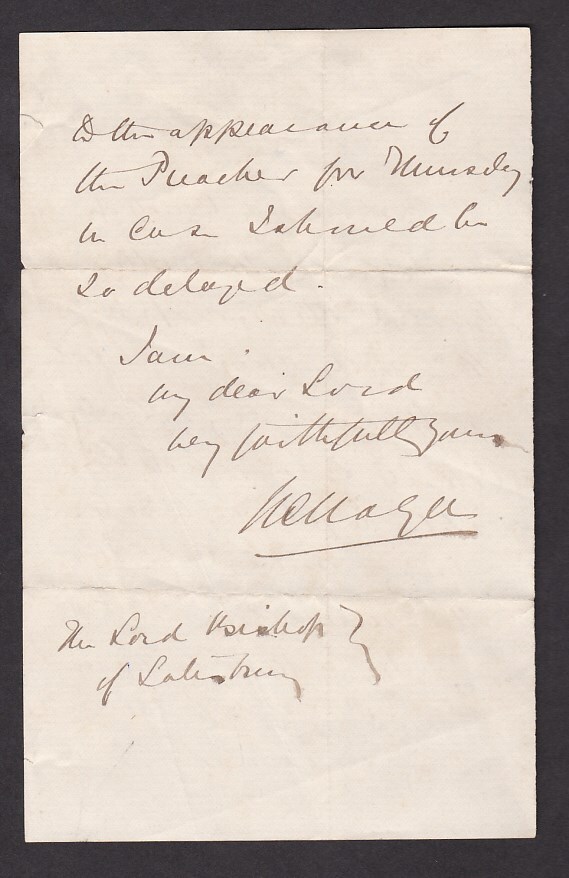 to the appearance of
the Preacher for Thursday
in case I should be
so delayed.
I am
my dear Lord
very faithfully yours
WC Magee
The Lord Bishop
of Salisbury